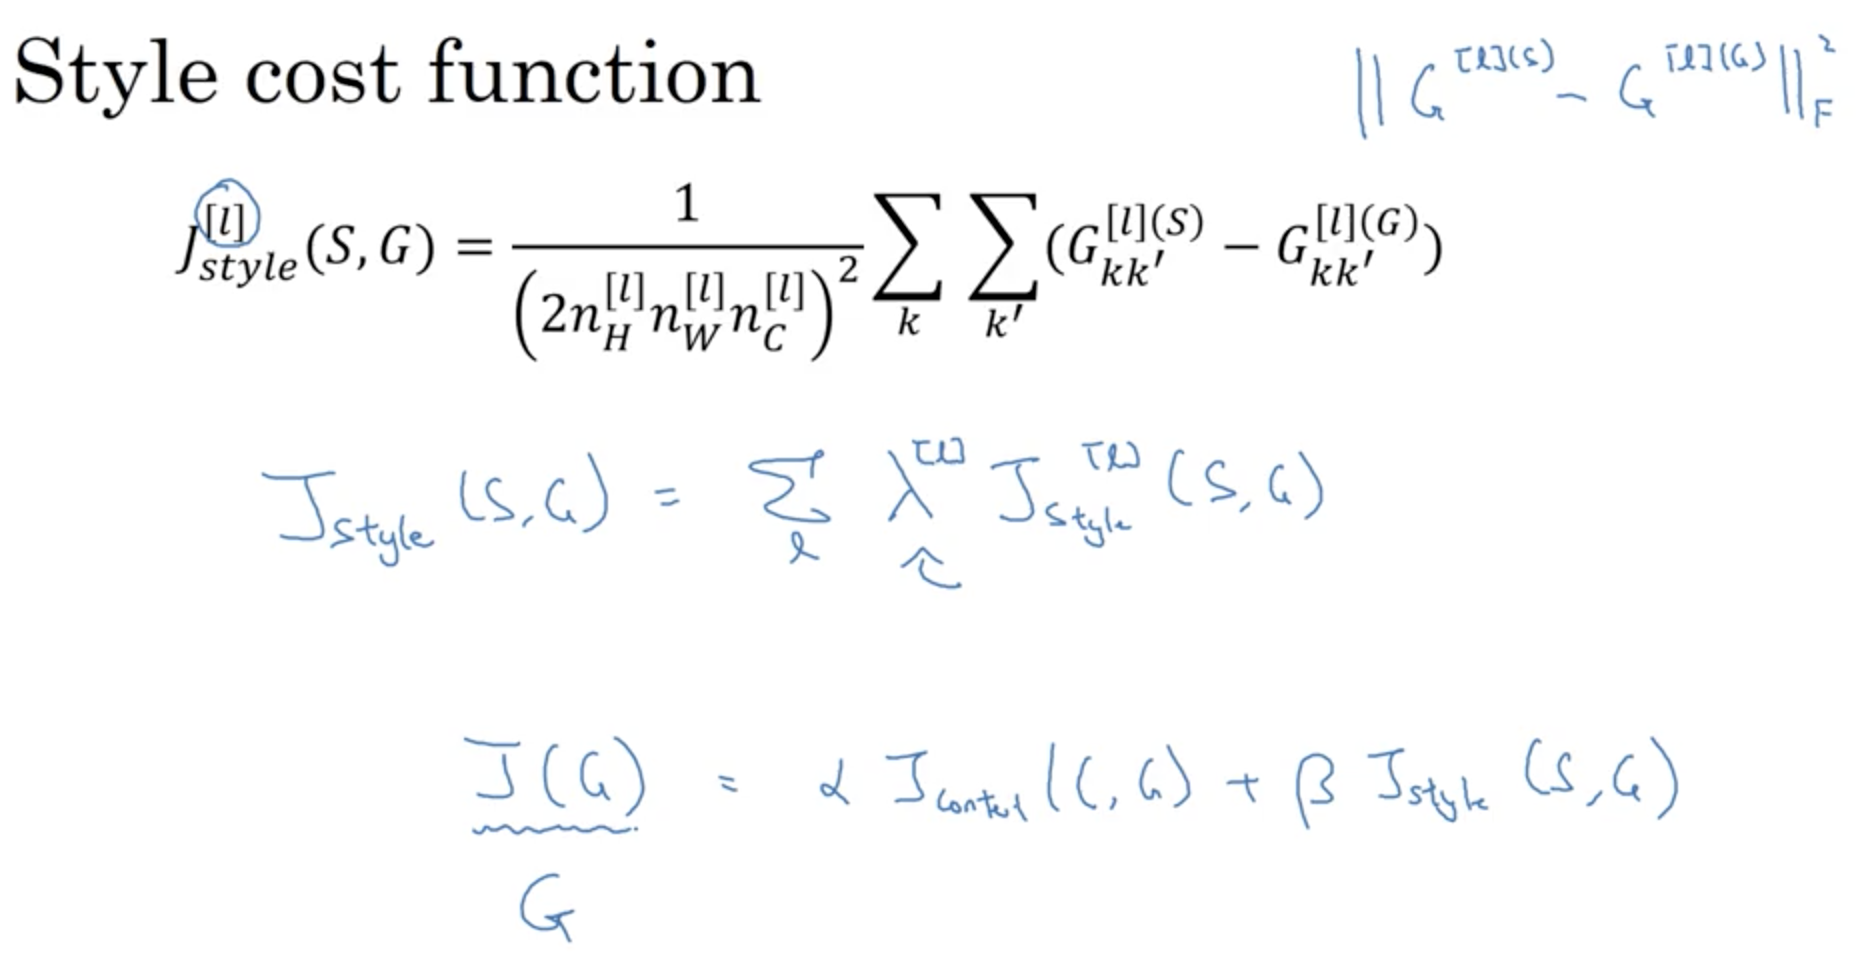 Style cost function
‖G^{[l](S)} − G^{[l](G)}‖_F^2
J_{style}^{[l]}(S, G) = \frac{1}{(2n_H^{[l]} n_W^{[l]} n_C^{[l]})^2} ∑_k ∑_{k′} (G_{kk′}^{[l](S)} − G_{kk′}^{[l](G)})
J_{style}(S, G) = ∑_l λ^{[l]} J_{style}^{[l]}(S, G)
J(G) = α J_{content}(C, G) + β J_{style}(S, G)
G